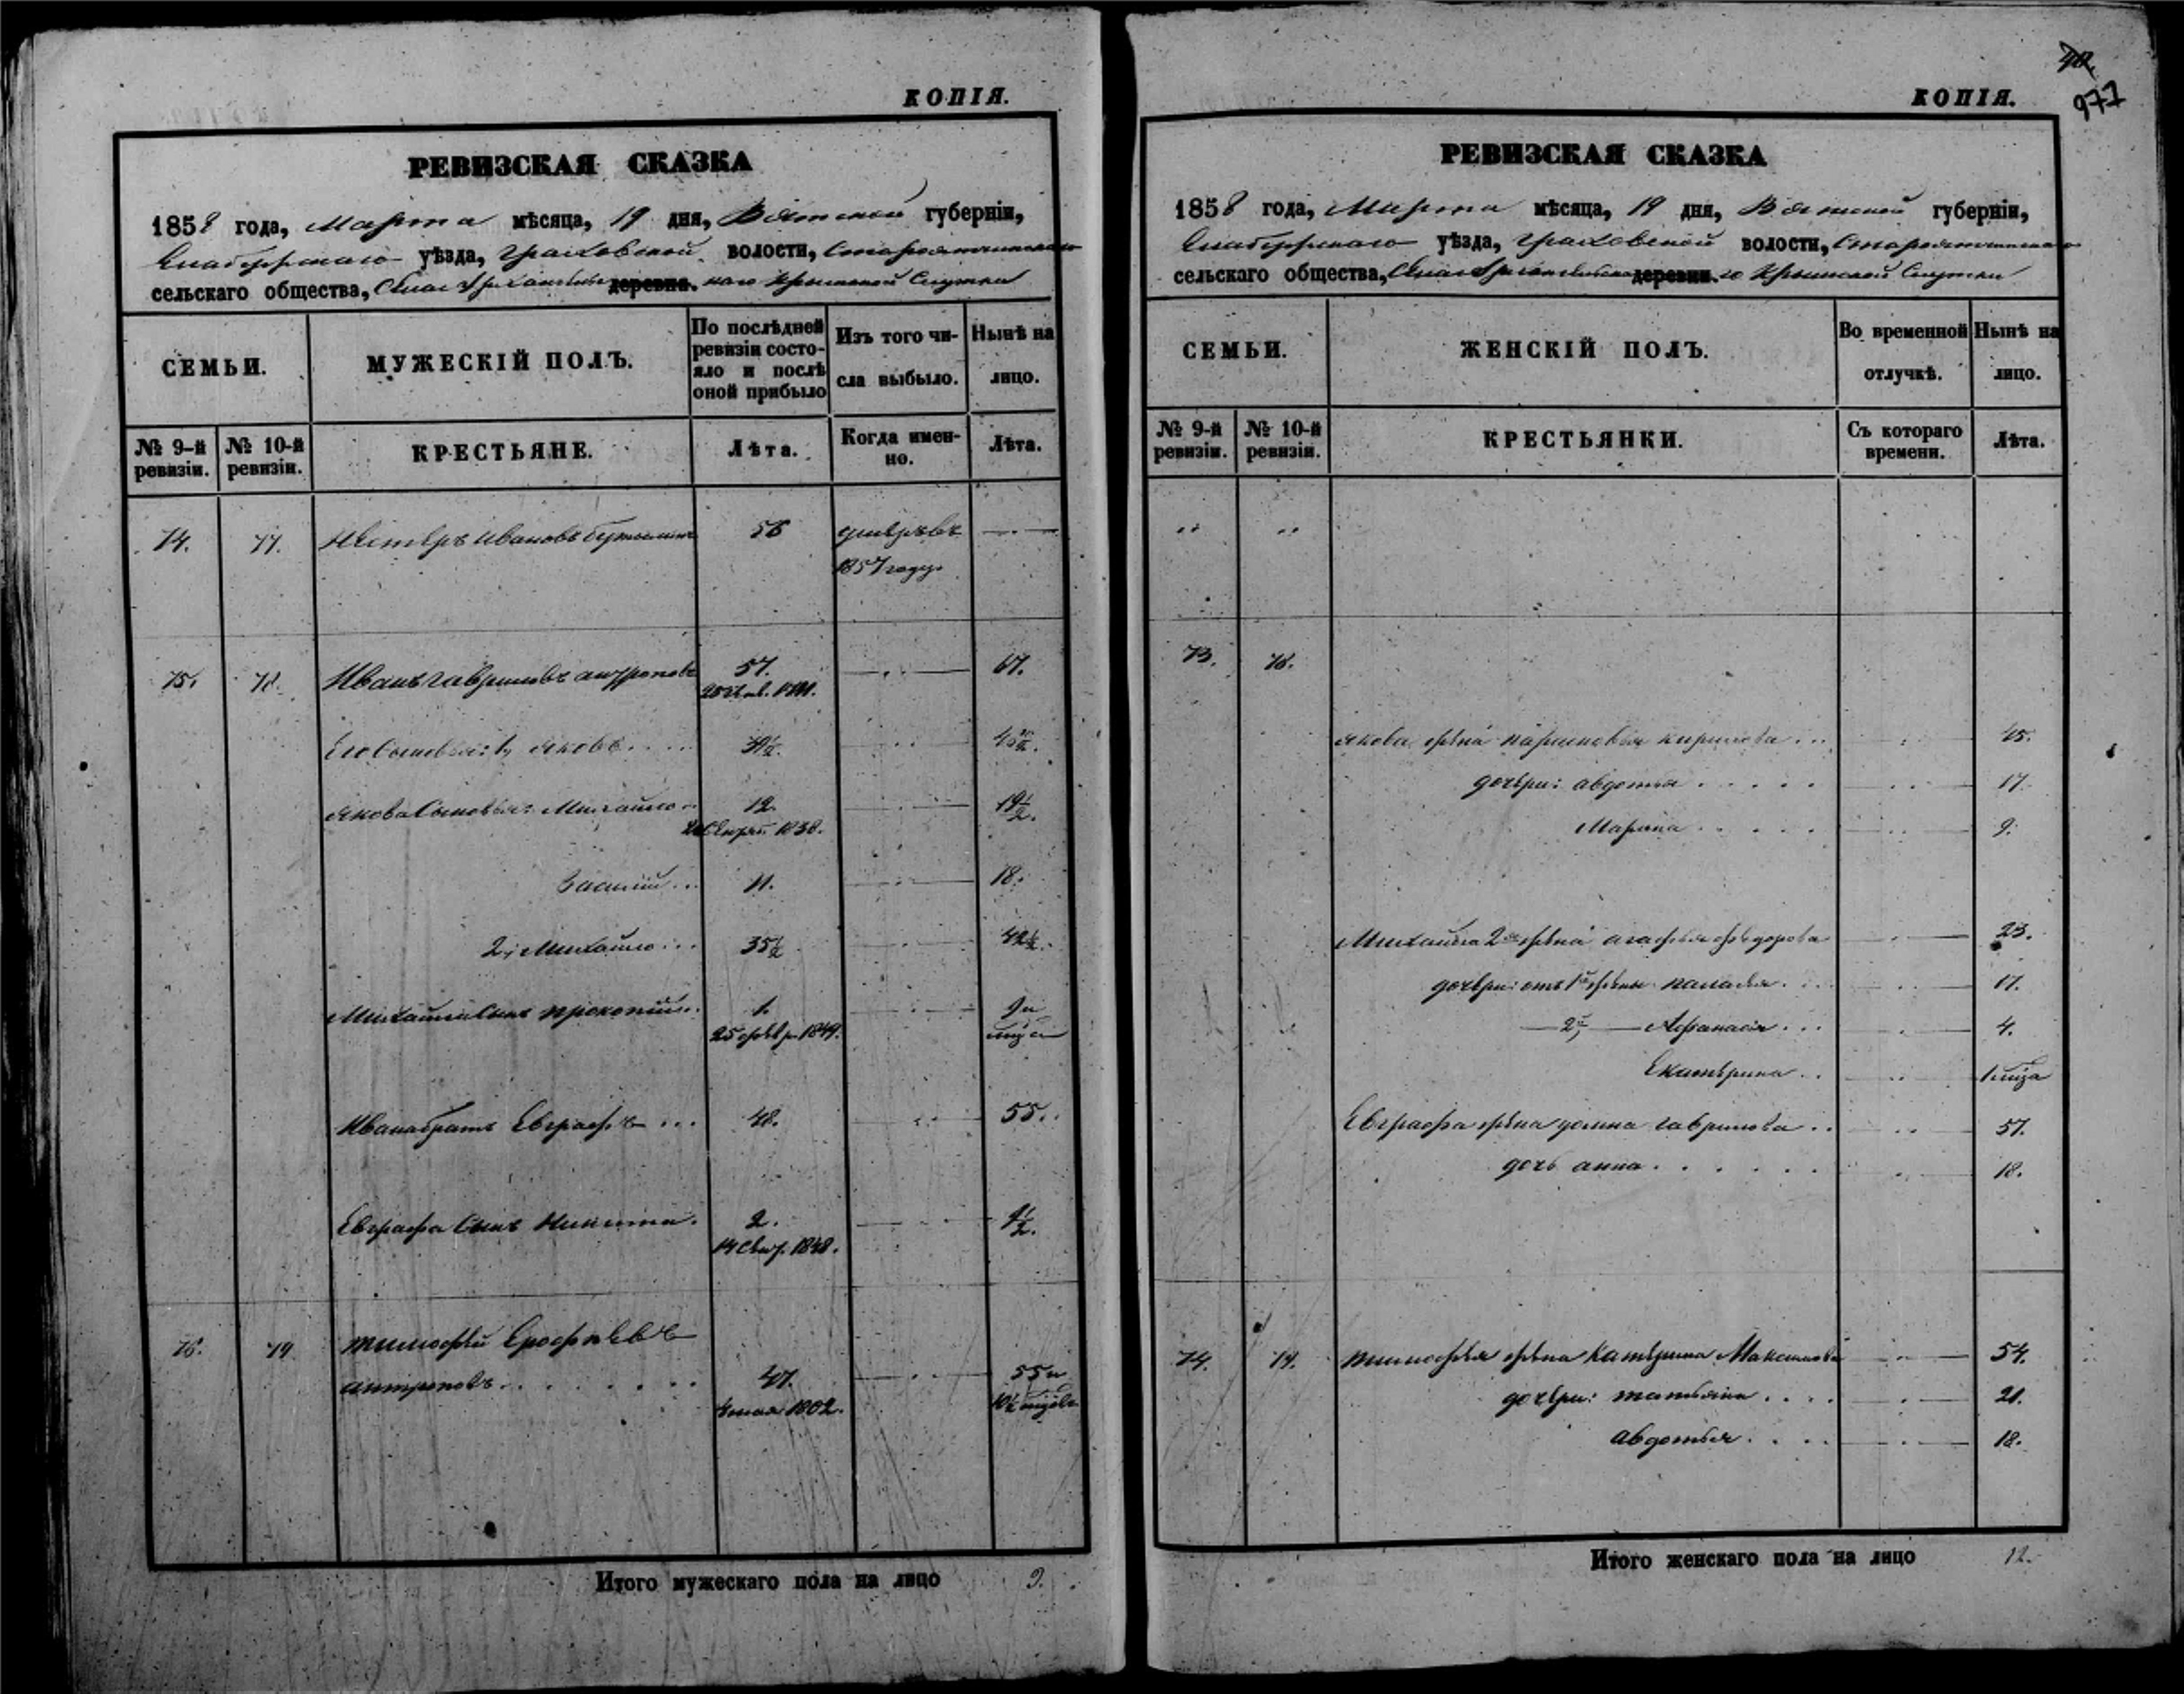 КОПІЯ.
РЕВИЗСКАЯ СКАЗКА
1858 года, Марта мѣсяца, 19 дня, Вятской губерніи,
Елабужскаго уѣзда, Граховской волости,
сельскаго общества, Села деревни. Крымской Слутки
СЕМЬИ.
МУЖЕСКІЙ ПОЛЪ.
По послѣдней ревизіи состояло и послѣ оной прибыло
Изъ того числа выбыло.
Нынѣ на лицо.
№ 9-й ревизіи.
№ 10-й ревизіи.
КРЕСТЬЯНЕ.
Лѣта.
Когда именно.
Лѣта.
74. 77. Нестеръ Ивановъ 56 умеръ въ
1857 году
75. 78. Иванъ Гавриловъ антроповъ 57. 67.
Его Сыновья: 1, Яковъ
Якова Сыновья: Михайло 12. 19½.
1838.
Василій 11. 18.
2, Михайло 35½ 42½.
Михайла Сынъ прокопій 1. 9 и
25 февр. 1849.
Ивана братъ Евграфъ 48. 55.
Евграфа Сынъ Никита. 2. 9½.
14 Сент. 1848.
76. 79. тимофей Ерофѣевъ
антроповъ 47. 55 и
мая 1802. 10½
Итого мужескаго пола на лицо 9.
КОПІЯ.
977
РЕВИЗСКАЯ СКАЗКА
1858 года, Марта мѣсяца, 19 дня, Вятской губерніи,
Елабужскаго уѣзда, Граховской волости,
сельскаго общества, Села деревни. Крымской Слутки
СЕМЬИ.
ЖЕНСКІЙ ПОЛЪ.
Во временной отлучкѣ.
Нынѣ на лицо.
№ 9-й ревизіи.
№ 10-й ревизіи.
КРЕСТЬЯНКИ.
Съ котораго времени.
Лѣта.
73. 78.
Якова жена парасковья кирилова 45.
дочери: авдотья 17.
Марина 9.
Михайла 2я жена агафья федорова 23.
дочери: отъ 1й жены палагья 17.
2й Афанасія 4.
Екатерина 1 мѣца
Евграфа жена домна гаврилова 57.
дочь анна 18.
74. 79. тимофея жена Катерина Максимова 54.
дочери: татьяна 21.
авдотья 18.
Итого женскаго пола на лицо 12.